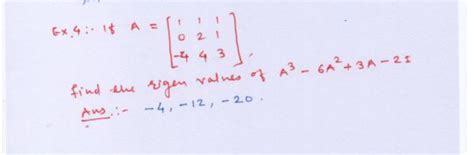 Ex.4:- If A = [ 1 1 1
0 2 1
-4 4 3 ],
find the eigen values of A³ - 6A² + 3A - 2I
Ans:- -4, -12, -20.